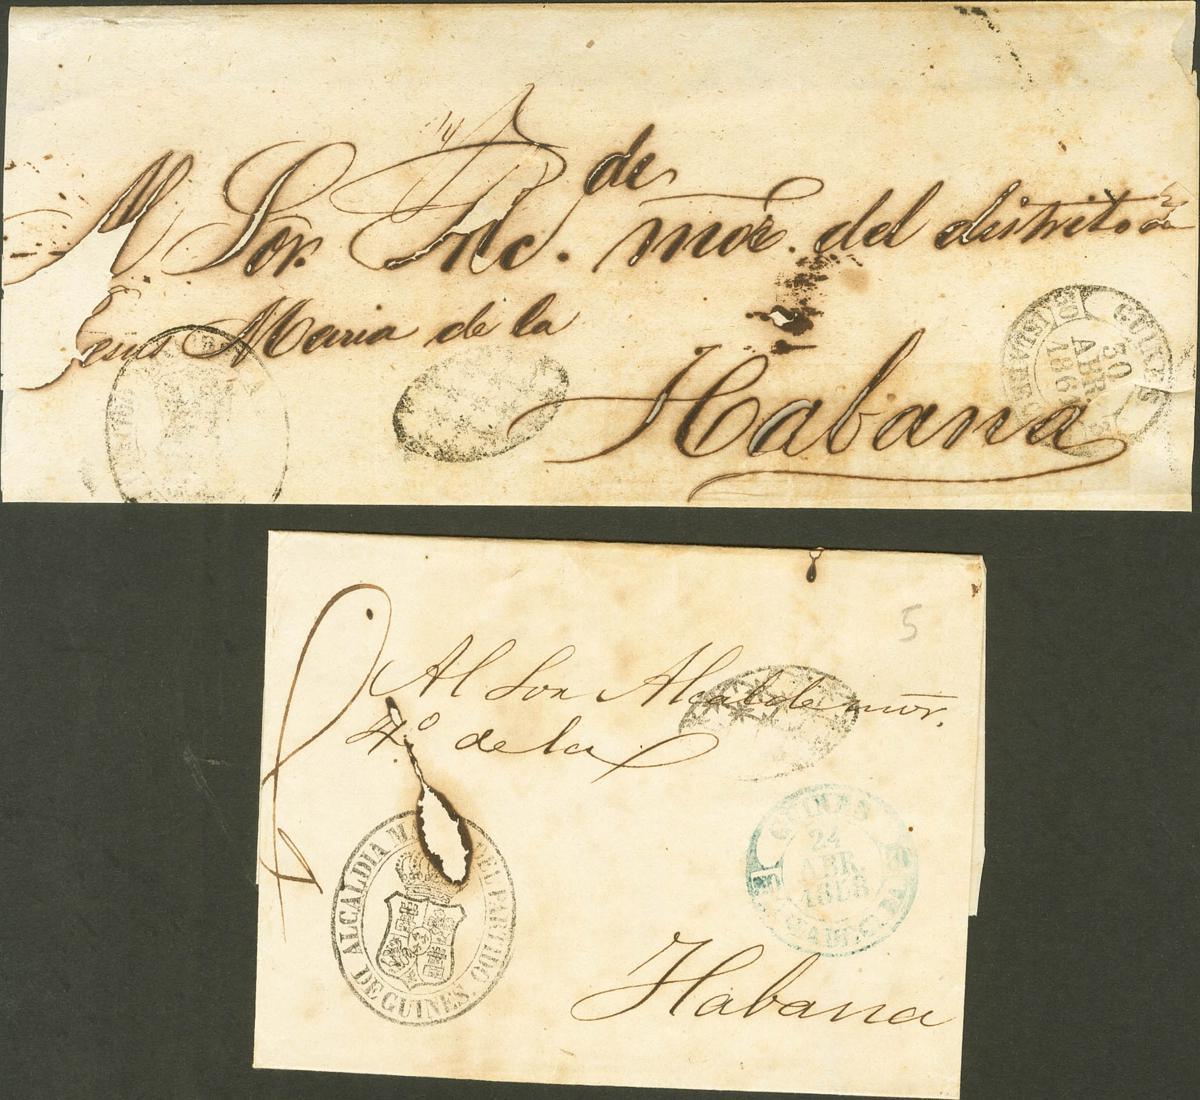 Al Sor. Alcde. mor. del distrito de
Jesus Maria de la
Habana
GUINES
30
ABR.
186
ISLA DE CUBA
5
Al Sor Alcalde mor.
4º de la
ALCALDIA MAYOR DEL PARTIDO
DE GUINES.
GUINES
24
ABR.
1858
ISLA DE CUBA
Habana